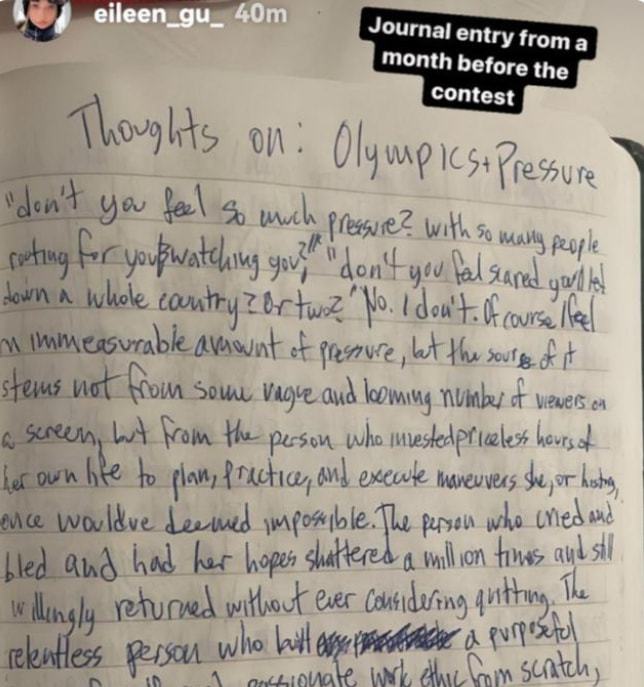 eileen_gu_ 40m
Journal entry from a
month before the
contest
Thoughts on: Olympics + Pressure
"don't you feel so much pressure? with so many people
rooting for you & watching you?" "don't you feel scared you'll let
down a whole country? Or two?" No. I don't. Of course I feel
an immeasurable amount of pressure, but the source of it
stems not from some vague and looming number of viewers on
a screen, but from the person who invested priceless hours of
her own life to plan, practice, and execute maneuvers she, or history,
once would've deemed impossible. The person who cried and
bled and had her hopes shattered a million times and still
willingly returned without ever considering quitting. The
relentless person who built a purposeful
passionate work ethic from scratch,